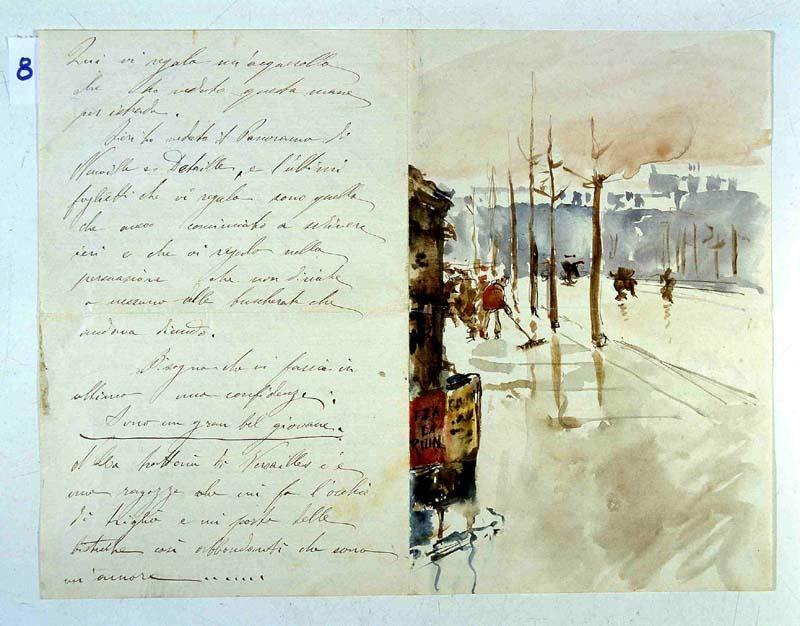 8
Qui vi regalo un'acquarello
che ho veduto questa mane
per istrada.
Ieri ho veduto il Panorama di
Neuville e Detaille, e l'ultimi
foglietti che vi regalo sono quelli
che avevo cominciato a scrivere
ieri e che vi regalo nella
persuasione che non direte
a nessuno alle buscherate che
andava dicendo.
Bisogna che vi faccia in
ultimo una confidenza:
Sono un gran bel giovane.
Alla trattoria di Versailles c'è
una ragazza che mi fa l'occhio
di triglia e mi porta delle
bistecche così abbondanti che sono
un'amore ......